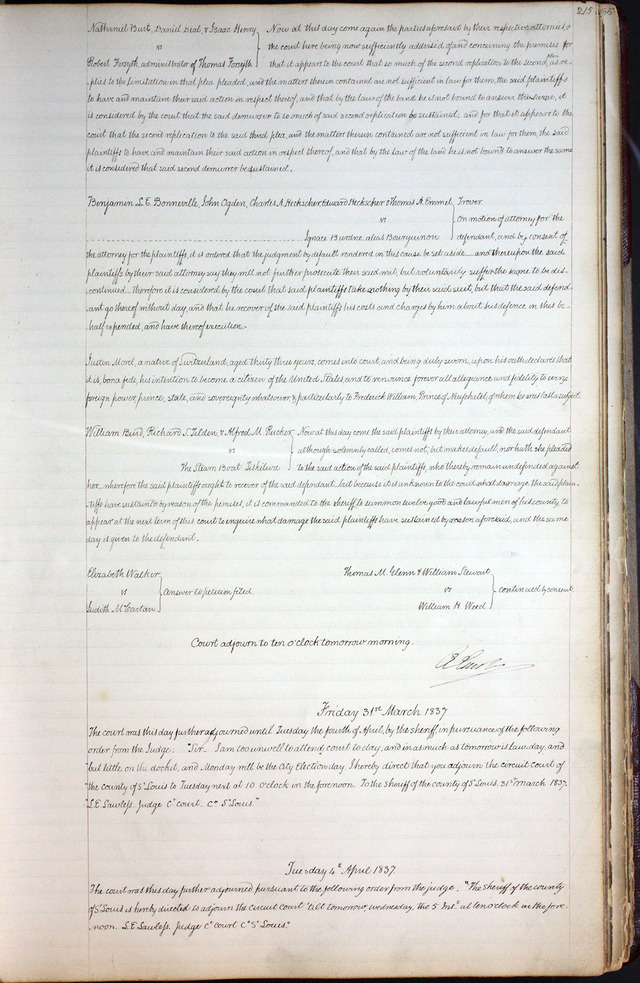 215
Nathaniel Burt, Daniel Deal, & Isaac Henry } Now at this day come again the parties aforesaid by their respective attornies, &
vs the court here being now sufficiently addvised of and concerning the premises for
Robert Forsyth, administrator of Thomas Forsyth } that it appears to the court that so much of the second replication to the second plea, as re-
plies to the limitation in that plea pleaded, and the matters therein contained are not sufficient in law for them, the said plaintiffs
to have and maintain their said action in respect thereof, and that by the law of the land he is not bound to answer the same, it
is considered by the court that the said demurrer to so much of said second replication be sustained. and for that it appears to the
court that the second replication to the said third plea, and the matters therein contained are not sufficient in law for them, the said
plaintiffs to have and maintain their said action in respect thereof, and that by the law of the land he is not bound to answer the same
it is considered that said second demurrer be sustained.
Benjamin L. E. Bonneville, John Ogden, Charles A. Heckscher, Edward Heckscher & Thomas A. Emmet } Trover.
vs On motion of attorney for the
Ignace Burdne alias Bourguinon } defendant, and by consent of
the attorney for the plaintiffs, it is ordered that the judgment by default rendered in this cause be set aside and thereupon the said
plaintiffs by their said attorney say they will not further prosecute their said suit, but voluntarily suffer the same to be dis-
continued. therefore it is considered by the court that said plaintiffs take nothing by their said suit, but that the said defend-
ant go thereof without day, and that he recover of the said plaintiffs his costs and charges by him about his defence in this be-
half expended, and have thereof execution.
Justin Morel, a native of Switzerland, aged thirty three years, comes into court, and being duly sworn, upon his oath declares that
it is, bona fide, his intention to become a citizen of the United States and to renounce forever all allegiance and fidelity to every
foreign power, prince, state, and sovereignty whatever & particularly to Frederick William, Prince of Neufchatel, of whom he was last a subject.
William Burd, Richard S. Tilden, & Alfred M. Rucker } Now at this day come the said plaintiffs by their attorney, and the said defendant
vs although solemnly called, comes not, but makes default, nor hath she pleaded
The Steam Boat Siskilwe } to the said action of the said plaintiffs, who thereby remain undefended against
her. wherefore the said plaintiffs ought to recover of the said defendant. but because it is unknown to the court what damage the said plain-
tiffs have sustained by reason of the premises, it is commanded to the sheriff to summon twelve good and lawful men of his county, to
appear at the next term of this court to inquire what damage the said plaintiffs have sustained by reason aforesaid, and the same
day is given to the defendant.
Elizabeth Walker
vs } Answer to petition filed.
Judith McCartan
Thomas M. Glenn & William Stewart
vs } continued by consent.
William H. Weed
Court adjourn to ten o'clock tomorrow morning.
Friday 31st March 1837
The court was this day further adjourned until Tuesday the fourth of April, by the sheriff, in pursuance of the following
order from the Judge. "Sir. I am too unwell to attend court to day, and in as much as tomorrow is law day, and
"but little on the docket, and Monday will be the City Election day, I hereby direct that you adjourn the circuit court of
"the county of St Louis to Tuesday next at 10 o'clock in the forenoon. To the Sheriff of the county of St Louis. 31st March 1837.
"L. E. Lawless. Judge Ct court. Co St Louis."
Tuesday 4th April 1837.
The court was this day further adjourned pursuant to the following order from the judge. "The sheriff of the county
of St Louis is hereby directed to adjourn the circuit court 'till tomorrow, wednesday, the 5 Inst at ten o'clock in the fore-
noon. L. E. Lawless. Judge Ct court Co St Louis."